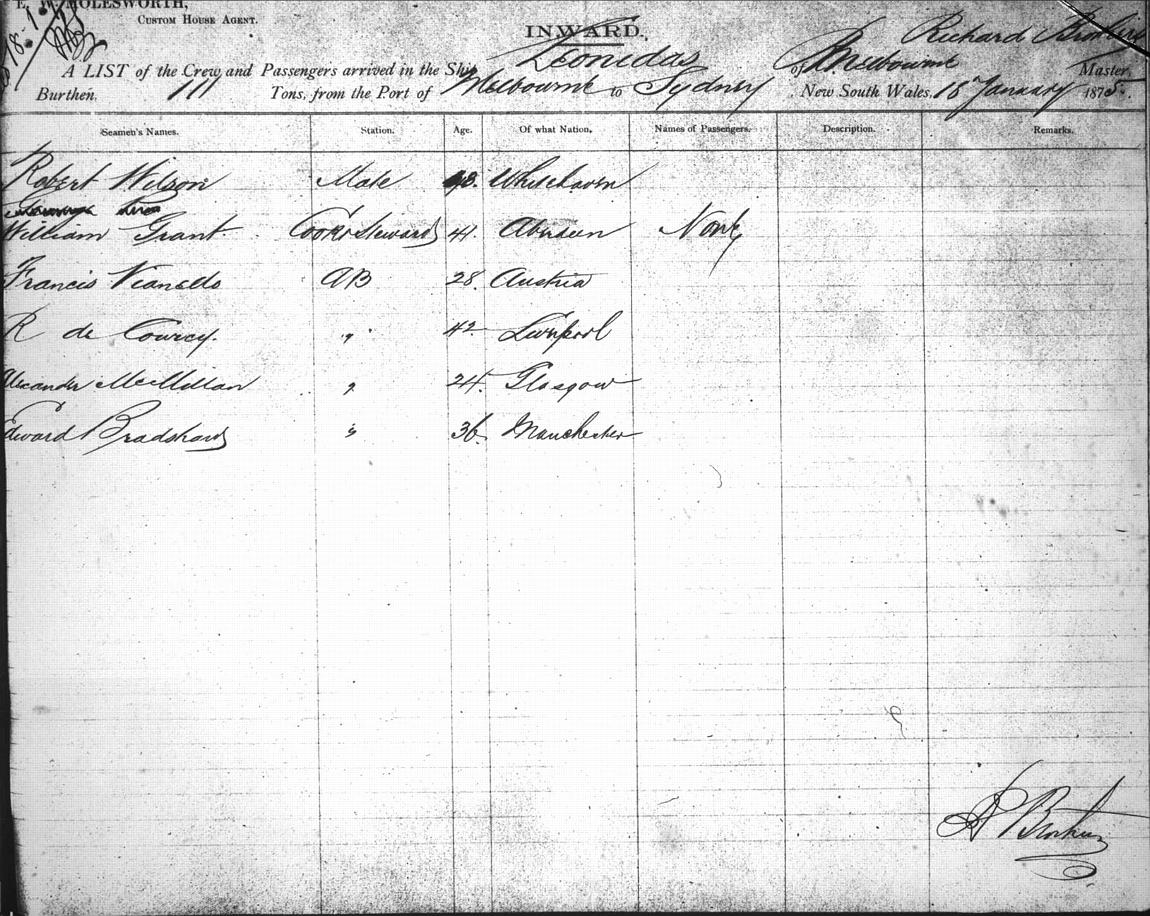 E. W. MOLESWORTH,
CUSTOM HOUSE AGENT.
INWARD.
Richard
A LIST of the Crew and Passengers arrived in the Ship Leonidas of Melbourne Master,
Burthen. 111 Tons, from the Port of Melbourne to Sydney New South Wales. 15 January 1875.
Seamen's Names. Station. Age. Of what Nation. Names of Passengers. Description. Remarks.
Robert Wilson Mate 48. Whitehaven
William Grant. Cook & Steward 41. Aberdeen None
Francis Vianello AB 28. Austria
R de Courcy. " 42 Liverpool
Alexander McMillan " 24. Glasgow
Edward Bradshaw " 36 Manchester